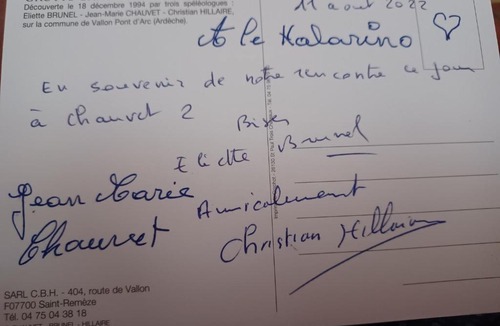 Découverte le 18 décembre 1994 par trois spéléologues :
Eliette BRUNEL - Jean-Marie CHAUVET - Christian HILLAIRE,
sur la commune de Vallon Pont d'Arc (Ardèche).
11 août 2022
A le Kalarino
En souvenir de notre rencontre ce jour
à Chauvet 2
Bises
Eliette Brunel
Jean Marie
Chauvet
Amicalement
Christian Hillaire
SARL C.B.H. - 404, route de Vallon
F07700 Saint-Remèze
Tél. 04 75 04 38 18